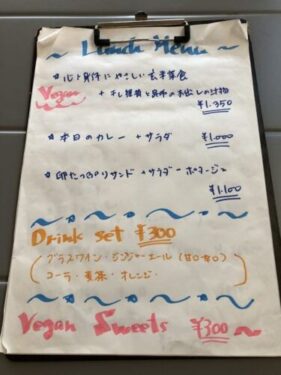 Lunch Menu
☆ 心と身体にやさしい玄米菜食
Vegan
+ 干し椎茸と昆布の水出しの汁物
¥1,350
☆ 本日のカレー + サラダ
¥1,000
☆ 卵たっぷりサンド + サラダ + ポタージュ
¥1,100
Drink set ¥300
(グラスワイン・ジンジャーエール (甘口・辛口)
コーラ・麦茶・オレンジ・)
Vegan Sweets ¥300